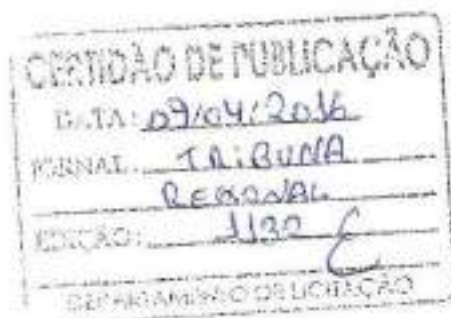 CERTIDÃO DE PUBLICAÇÃO
DATA: 07/04/2016
JORNAL: TRIBUNA
REGIONAL
EDIÇÃO: 1130
DEPARTAMENTO DE LICITAÇÃO